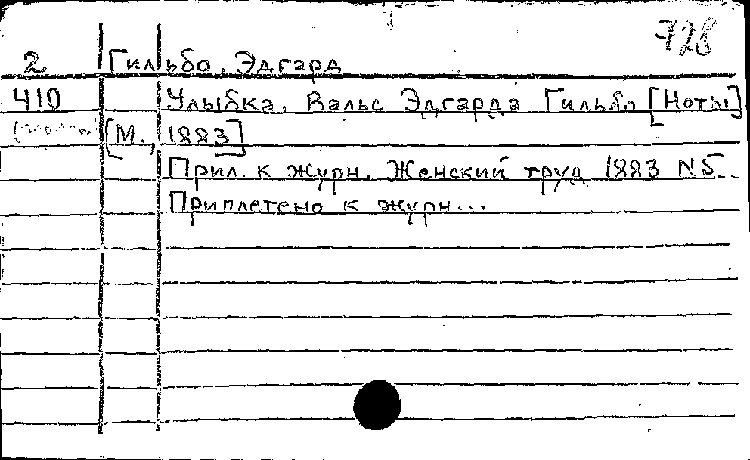 728
2 Гильбо, Эдгард
410 Улыбка. Вальс Эдгарда Гильбо [Ноты]
[М., 1883]
Прил. к журн. Женский труд 1883 N5.
Приплетено к журн...